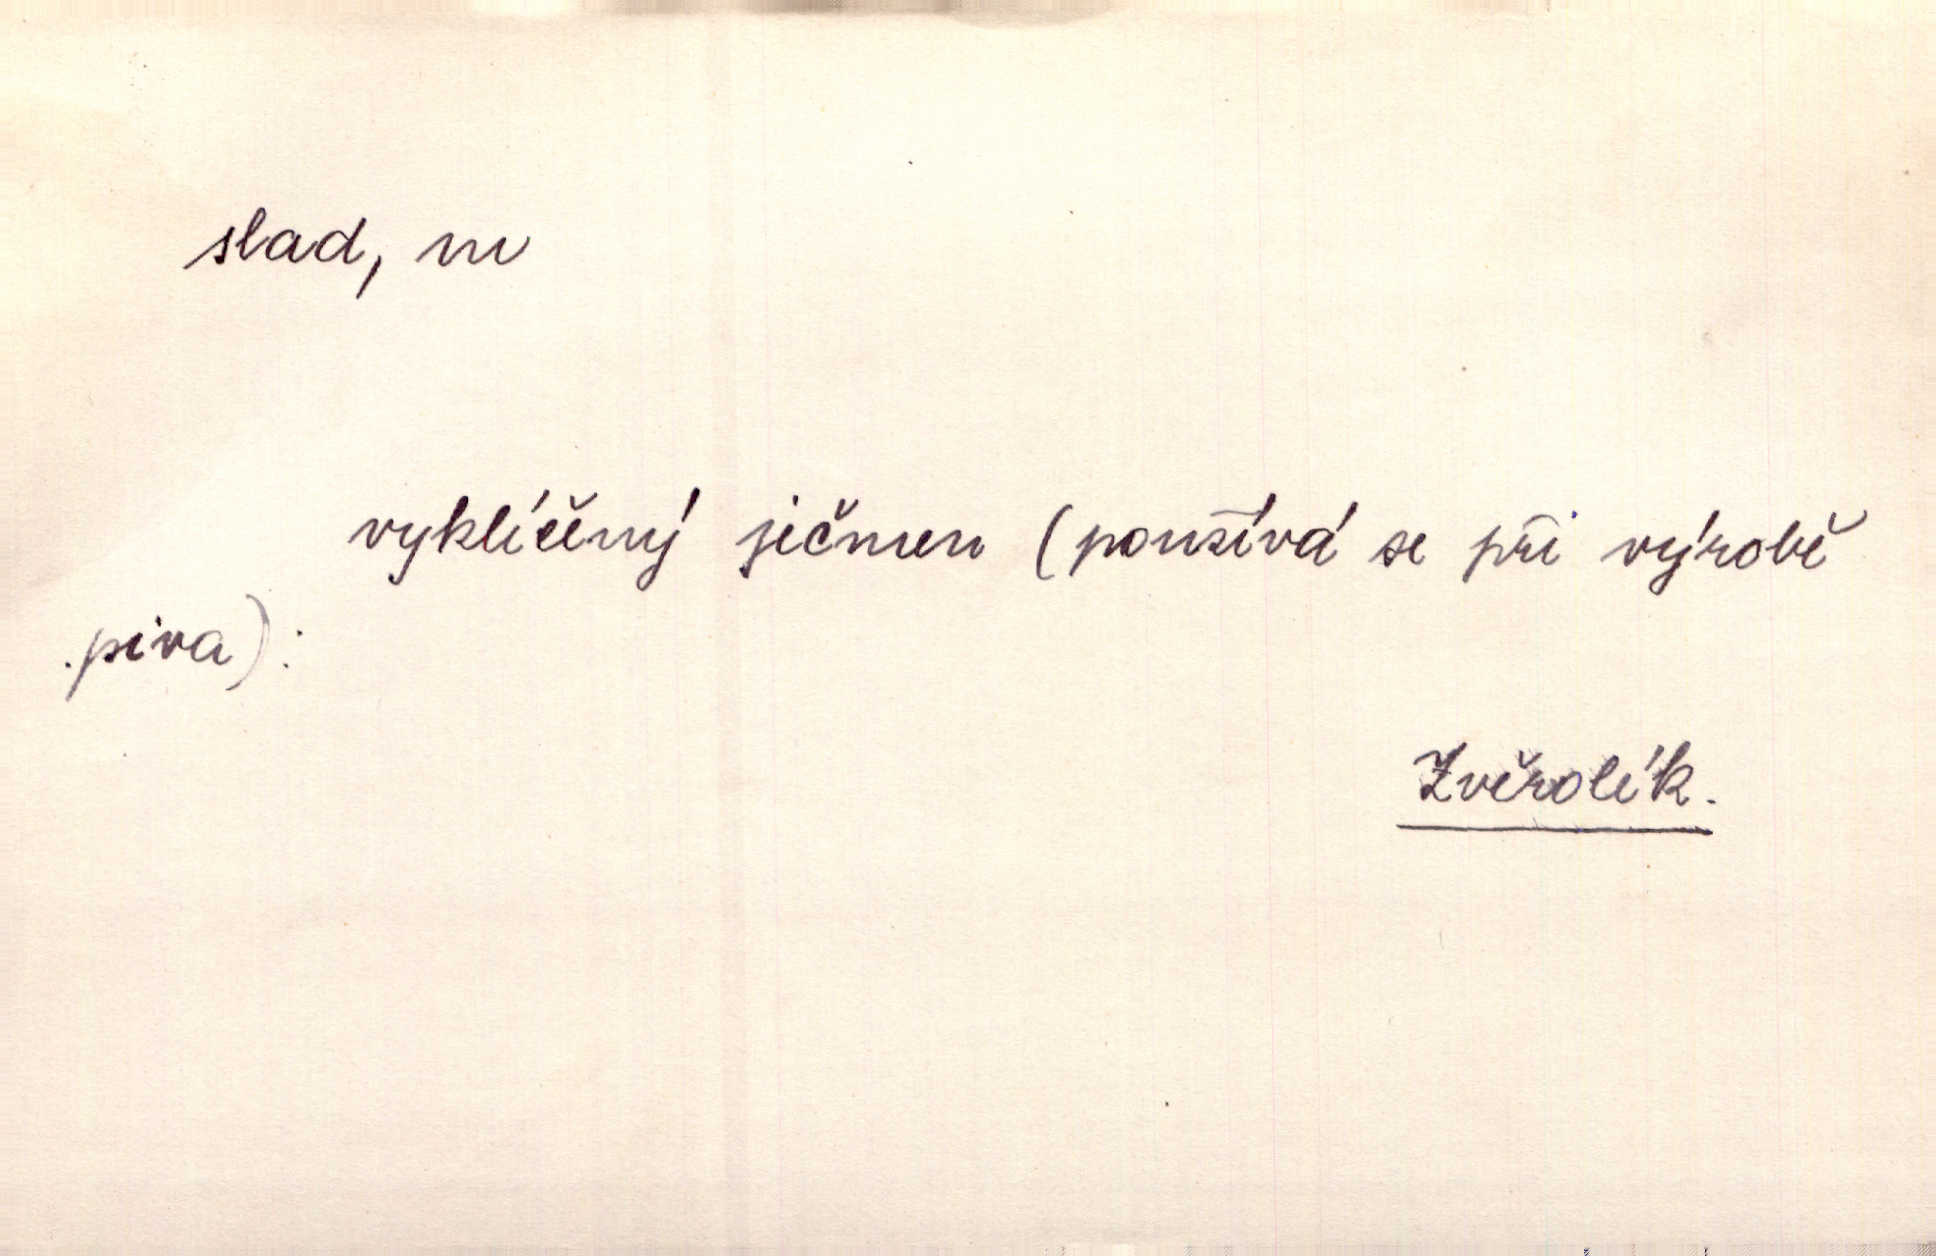 slad, m
vyklíčený ječmen (používá se při výrobě
piva):
Zvěrolík.